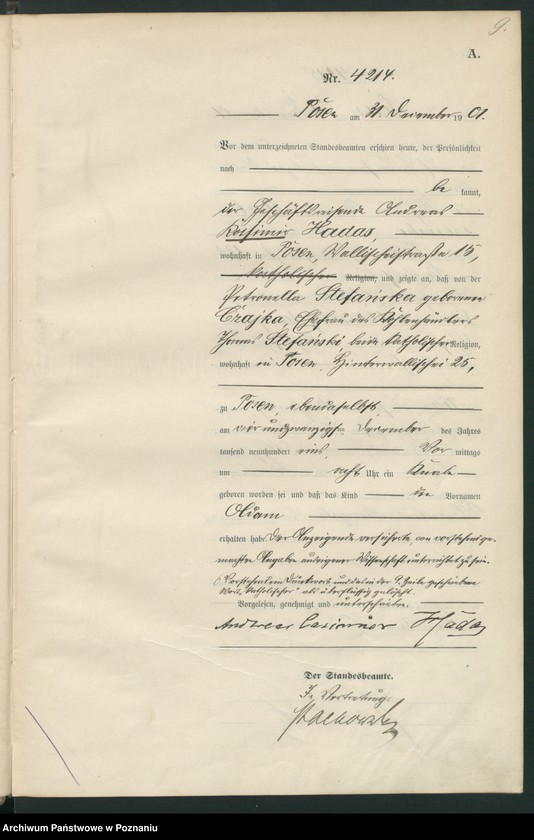 9.
A.
Nr. 4214.
Posen am 31. Dezember 1901.
Vor dem unterzeichneten Standesbeamten erschien heute, der Persönlichkeit
nach
be kannt,
der Geschäftsreisende Andreas
Kasimir Hadas,
wohnhaft in Posen, Wallischeistraße 15,
katholischer Religion, und zeigte an, daß von der
Petronella Stefańska geborenen
Czajka, Ehefrau des
Thomas Stefański beide katholischer Religion,
wohnhaft in Posen, Hinterwallischei 25,
zu Posen, ebendaselbst
am vierundzwanzigsten Dezember des Jahres
tausend neunhundert eins, Vor mittags
um acht Uhr ein Knabe
geboren worden sei und daß das Kind den Vornamen
Adam
erhalten habe. Der Anzeigende versicherte, von vorstehend ge-
machter Angabe aus eigener Wissenschaft unterrichtet zu sein.
Vorstehend ein Druckwort und das in der 9. Zeile geschriebene
Wort „katholischer“ als überflüssig gelöscht.
Vorgelesen, genehmigt und unterschrieben.
Andreas Casimir Hadas
Der Standesbeamte.
In Vertretung
Archiwum Państwowe w Poznaniu